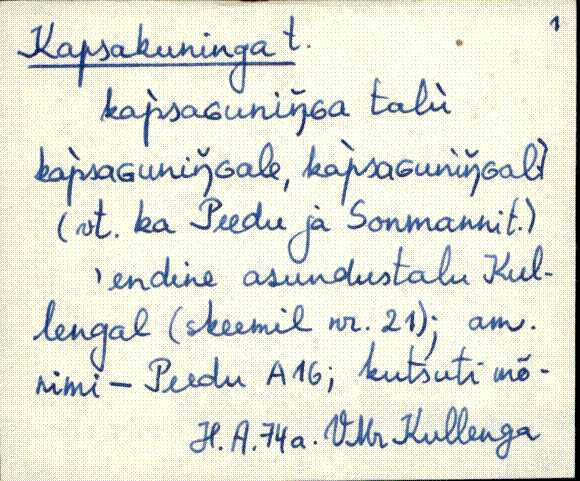 1
Kapsakuninga t.
kàpsaɢuniŋ̆ɢa talù
kàpsaɢuniŋ̆ɢale, kàpsaɢuniŋ̆ɢalt
(vt. ka Peedu ja Sonmanni t.)
'endine asundustalu Kul-
lengal (skeemil nr. 21); am.
nimi – Peedu A16; kutsuti mõ-
H.A.74a. VMr Kullenga